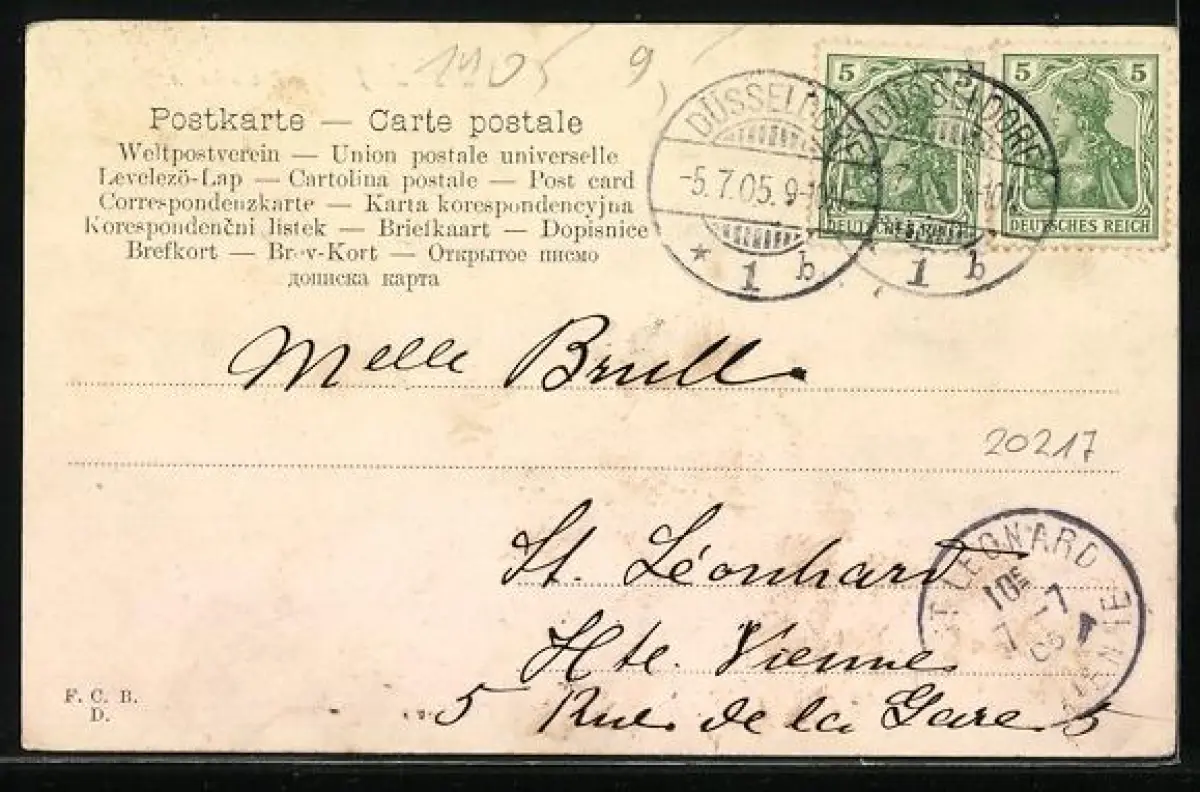 1905 9,
Postkarte — Carte postale
Weltpostverein — Union postale universelle
Levelezö-Lap — Cartolina postale — Post card
Correspondenzkarte — Karta korespondencyjna
Korespondenční listek — Briefkaart — Dopisnice
Brefkort — Brev-Kort — Открытое письмо
дописка карта
DÜSSELDORF
-5.7.05. 9-10
* 1 b
DÜSSELDORF
* 1 b
5 5
DEUTSCHES REICH
5 5
DEUTSCHES REICH
Melle Brull.
20217
St. Léonhard
Hte. Vienne
5 Rue de la Gare 5
ST LEONARD
10E
7 -7
05
VIENNE
F. C. B.
D.